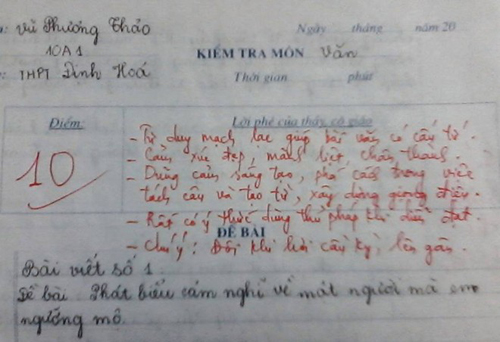 : Vũ Phương Thảo Ngày tháng năm 20
10A1 KIỂM TRA MÔN Văn
: THPT Định Hoá Thời gian phút
Điểm: Lời phê của thầy, cô giáo
10
- Tư duy mạch lạc giúp bài văn có cấu tứ.
- Cảm xúc đẹp, mãnh liệt, chân thành.
- Dùng câu sáng tạo, phá cách trong việc
tách câu và tạo từ, xây dựng giọng điệu.
- Rất có ý thức dùng thủ pháp khi diễn đạt.
- Chú ý: Đôi khi hơi cầu kỳ, lên gân.
ĐỀ BÀI
Bài viết số 1
Đề bài Phát biểu cảm nghĩ về một người mà em
ngưỡng mộ.